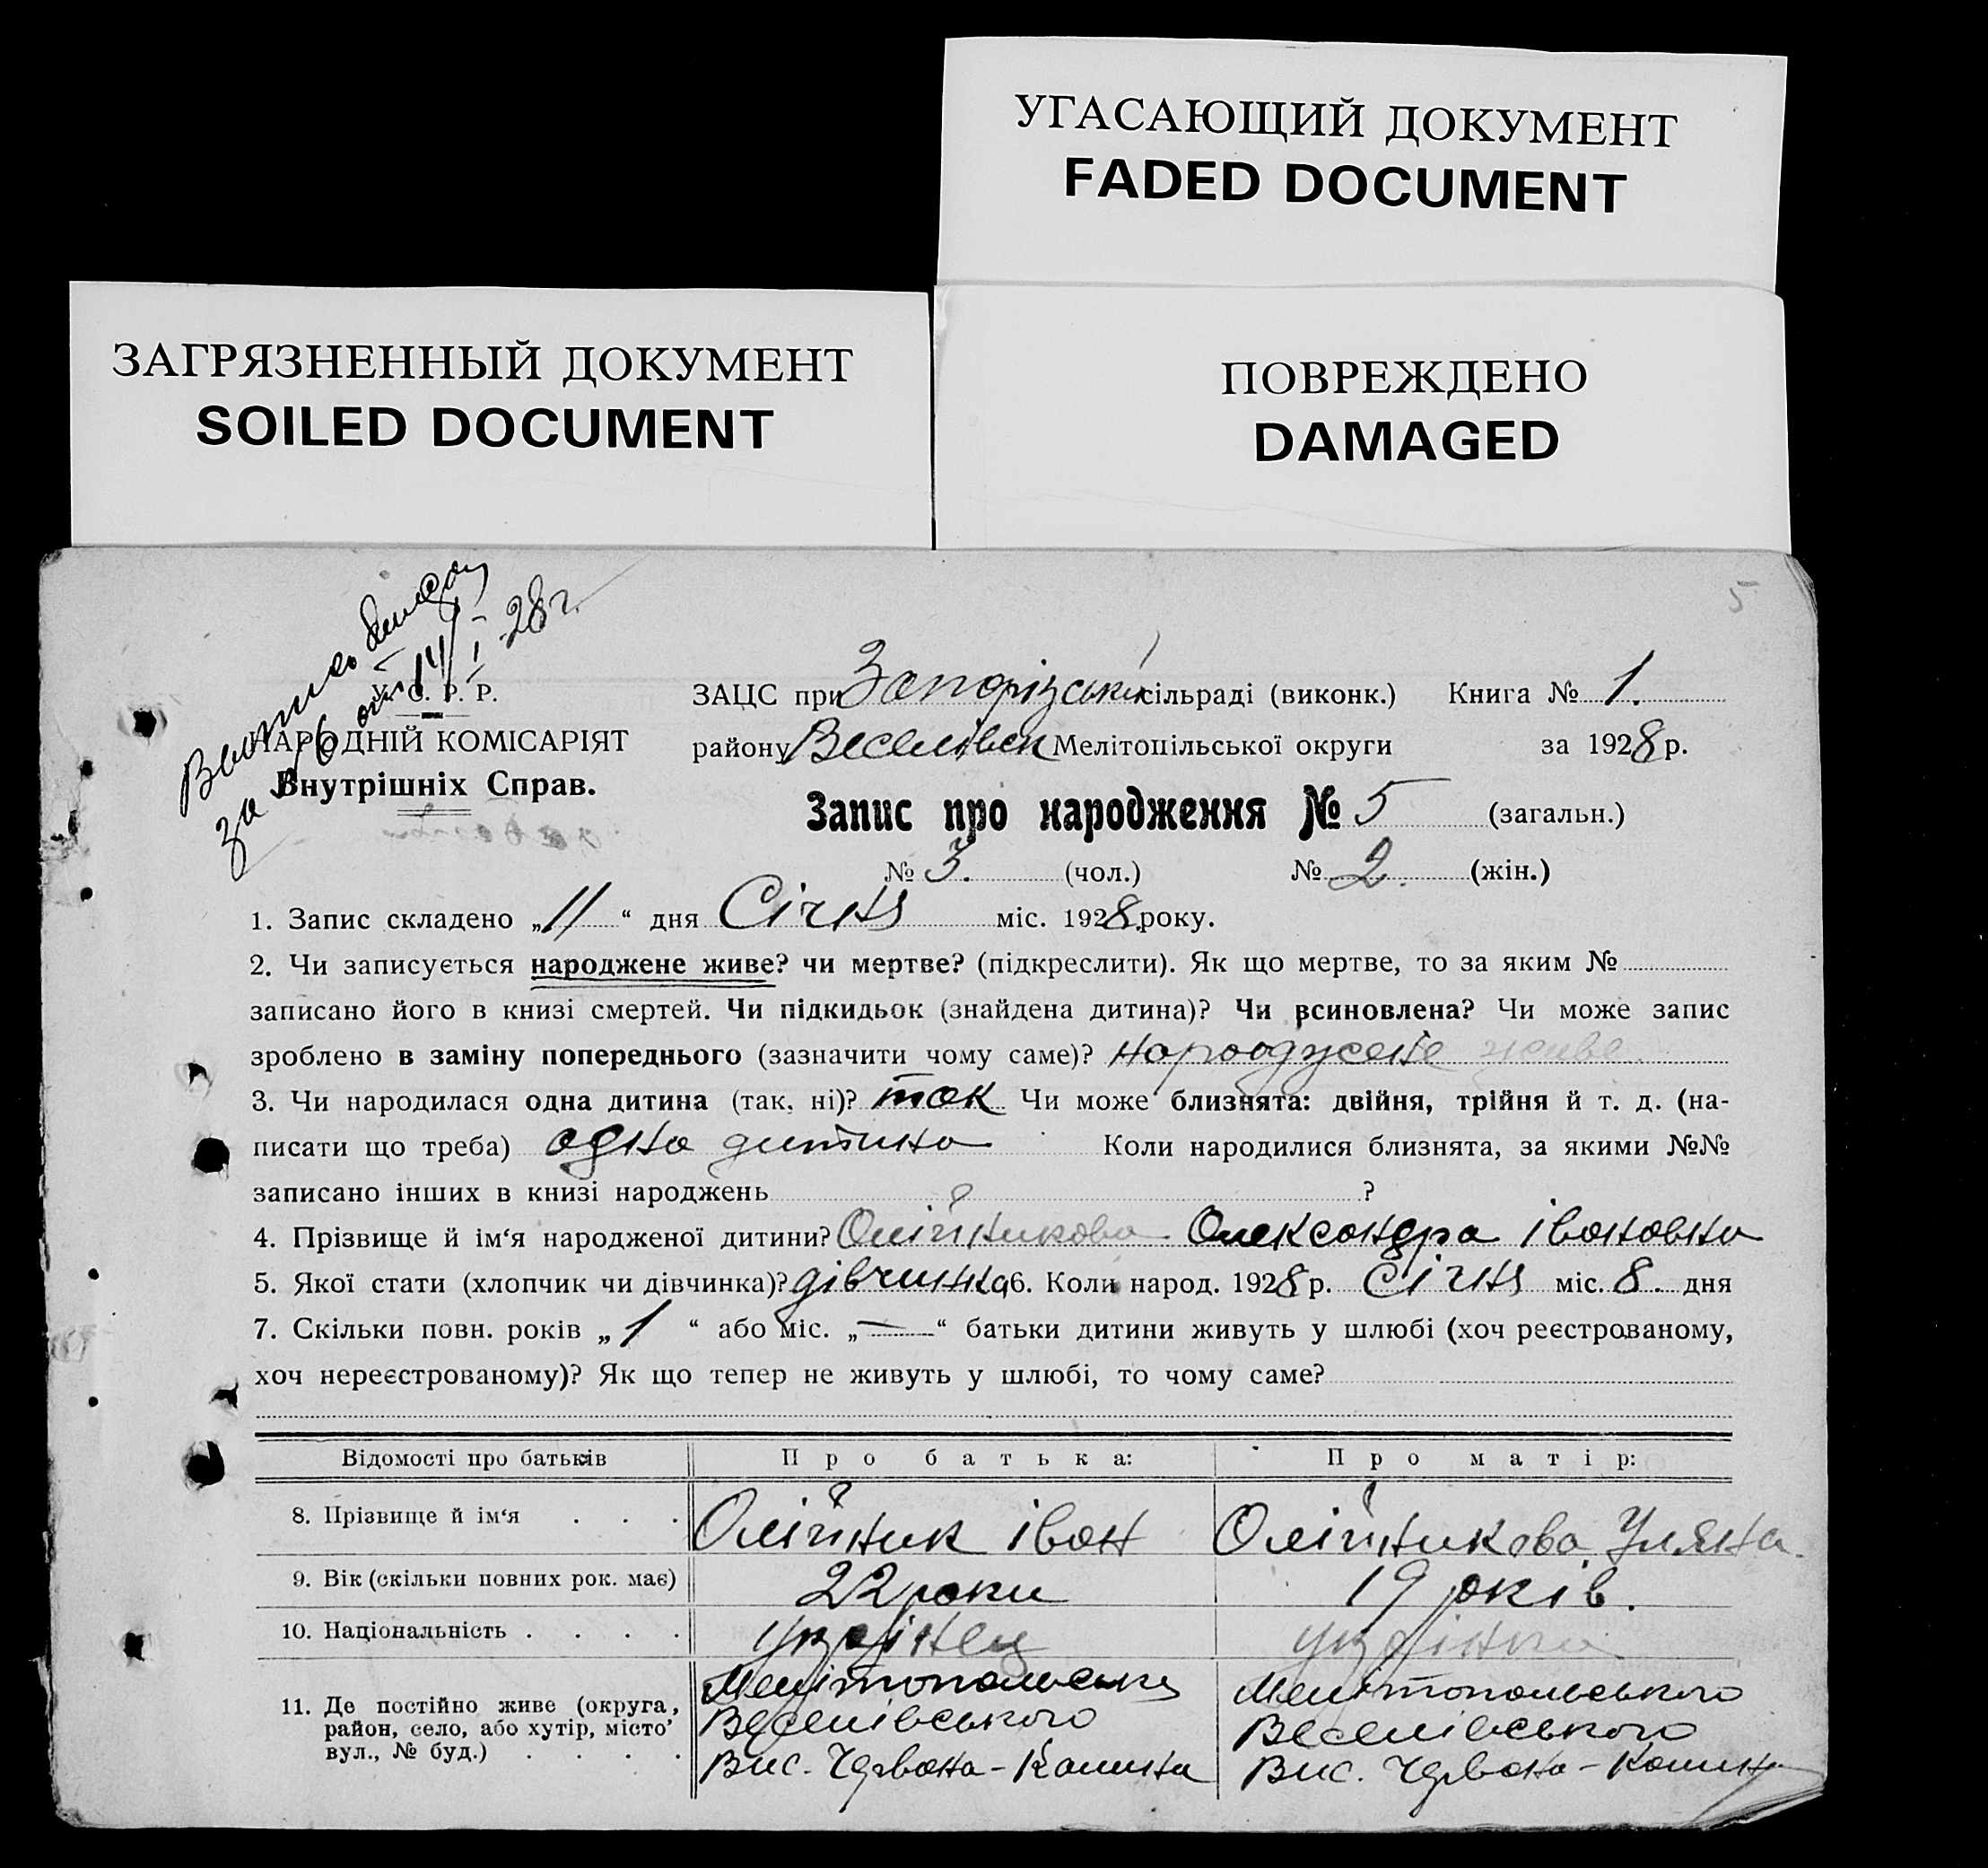 УГАСАЮЩИЙ ДОКУМЕНТ
FADED DOCUMENT
ЗАГРЯЗНЕННЫЙ ДОКУМЕНТ
SOILED DOCUMENT
ПОВРЕЖДЕНО
DAMAGED
5
за №6 от 14/I-28 г.
У. С. Р. Р.
НАРОДНІЙ КОМІСАРІЯТ
Внутрішніх Справ.
ЗАЦС при Запорізській сільраді (виконк.) Книга № 1.
району Веселівськ Мелітопільської округи за 1928 р.
Запис про народження № 5 (загальн.)
№ 3. (чол.) № 2. (жін.)
1. Запис складено „11“ дня Січня міс. 1928 року.
2. Чи записується народжене живе? чи мертве? (підкреслити). Як що мертве, то за яким №
записано його в книзі смертей. Чи підкидьок (знайдена дитина)? Чи всиновлена? Чи може запис
зроблено в заміну попереднього (зазначити чому саме)? народжене живе
3. Чи народилася одна дитина (так, ні)? так Чи може близнята: двійня, трійня й т. д. (на-
писати що треба) одна дитина Коли народилися близнята, за якими №№
записано інших в книзі народжень ?
4. Прізвище й ім‘я народженої дитини? Олійникова Олександра Івановна
5. Якої стати (хлопчик чи дівчинка)? дівчинка 6. Коли народ. 1928 р. Січня міс. 8. дня
7. Скільки повн. років „1“ або міс. „—“ батьки дитини живуть у шлюбі (хоч реєстрованому,
хоч нереєстрованому)? Як що тепер не живуть у шлюбі, то чому саме?
Відомості про батьків Про батька: Про матір:
8. Прізвище й ім‘я . . . Олійник Іван Олійникова Уляна
9. Вік (скільки повних рок. має) 22 роки 19 років.
10. Національність . . . . українец українка
11. Де постійно живе (округа, район, село, або хутір, місто, вул., № буд.) . . . .
Мелітопольськ Мелітопольського
Веселівського Веселівського
Вис. Червона-Калина Вис. Червона-Калина